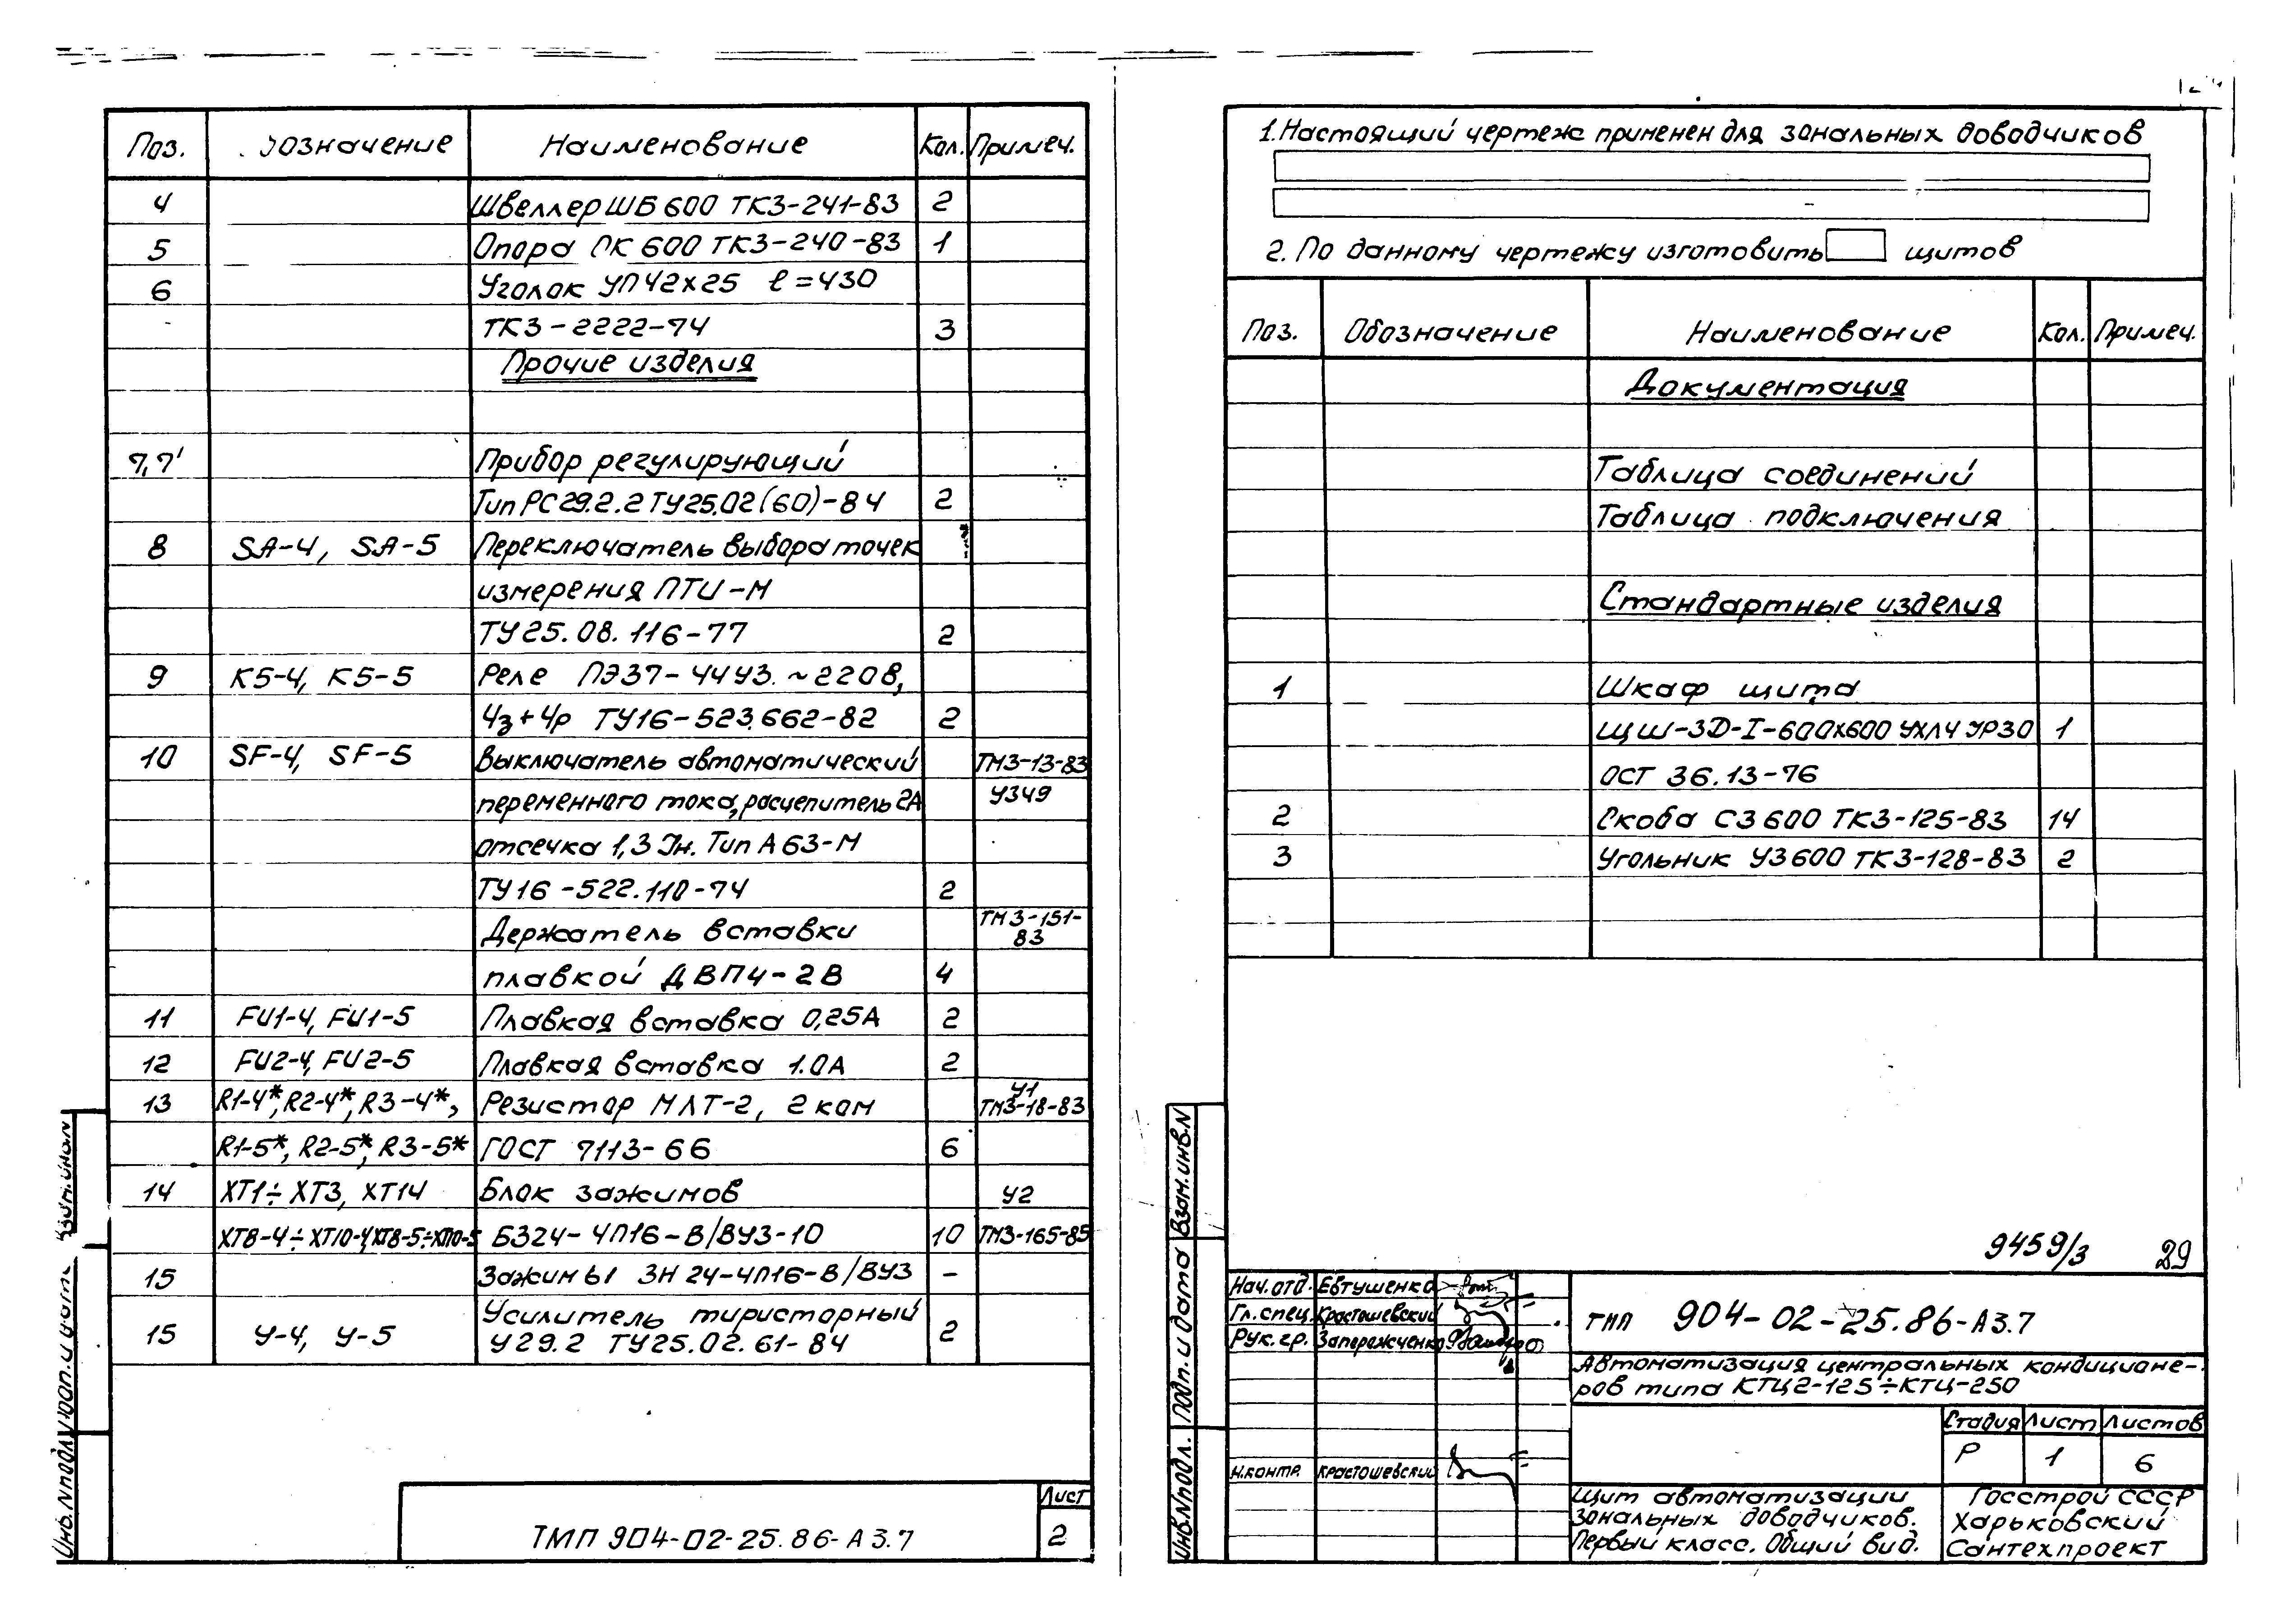 Поз. Обозначение Наименование Кол. Примеч.
4 Швеллер ШБ 600 ТК3-241-83 2
5 Опора ПК 600 ТК3-240-83 1
6 Уголок УП 42х25 ℓ=430
ТК3-2222-74 3
Прочие изделия
7,7' Прибор регулирующий
Тип РС29.2.2 ТУ25.02(60)-84 2
8 SA-4, SA-5 Переключатель выбора точек
измерения ПТИ-М
ТУ25.08.116-77 2
9 К5-4, К5-5 Реле ПЭ37-44У3. ~220В,
4з+4р ТУ16-523.662-82 2
10 SF-4, SF-5 Выключатель автоматический ТМ3-13-83
переменного тока, расцепитель 2А У349
отсечка 1,3 Iн. Тип А63-М
ТУ16-522.110-74 2
Держатель вставки ТМ3-151-83
плавкой ДВП4-2В 4
11 FU1-4, FU1-5 Плавкая вставка 0,25А 2
12 FU2-4, FU2-5 Плавкая вставка 1.0А 2
13 R1-4*, R2-4*, R3-4*, Резистор МЛТ-2, 2 ком У1 ТМ3-18-83
R1-5*, R2-5*, R3-5* ГОСТ 7113-66 6
14 ХТ1÷ХТ3, ХТ14 Блок зажимов У2
ХТ8-4÷ХТ10-4, ХТ8-5÷ХТ10-5 Б324-4П16-В/ВУ3-10 10 ТМ3-165-85
15 Зажимы ЗН24-4П16-В/ВУ3 -
Усилитель тиристорный
15 У-4, У-5 У29.2 ТУ25.02.61-84 2
Инв.№подл. Подп. и дата Взам.инв.№
ТМП 904-02-25.86-А3.7
Лист
2
1. Настоящий чертеж применен для зональных доводчиков
2. По данному чертежу изготовить щитов
Поз. Обозначение Наименование Кол. Примеч.
Документация
Таблица соединений
Таблица подключения
Стандартные изделия
1 Шкаф щита
ЩШ-3D-I-600х600 УХЛ4 УР30 1
ОСТ 36.13-76
2 Скоба С3 600 ТК3-125-83 14
3 Угольник У3 600 ТК3-128-83 2
9459/3 29
Инв.№подл. Подп. и дата Взам.инв.№
Нач.отд. Евтушенко
Гл.спец. Красташевский
Рук.гр. Запорожченко
Н.контр. Красташевский
ТМП 904-02-25.86-А3.7
Автоматизация центральных кондиционе-
ров типа КТЦ2-125÷КТЦ-250
Стадия Лист Листов
Р 1 6
Щит автоматизации
зональных доводчиков.
Первый класс. Общий вид.
Госстрой СССР
Харьковский
Сантехпроект